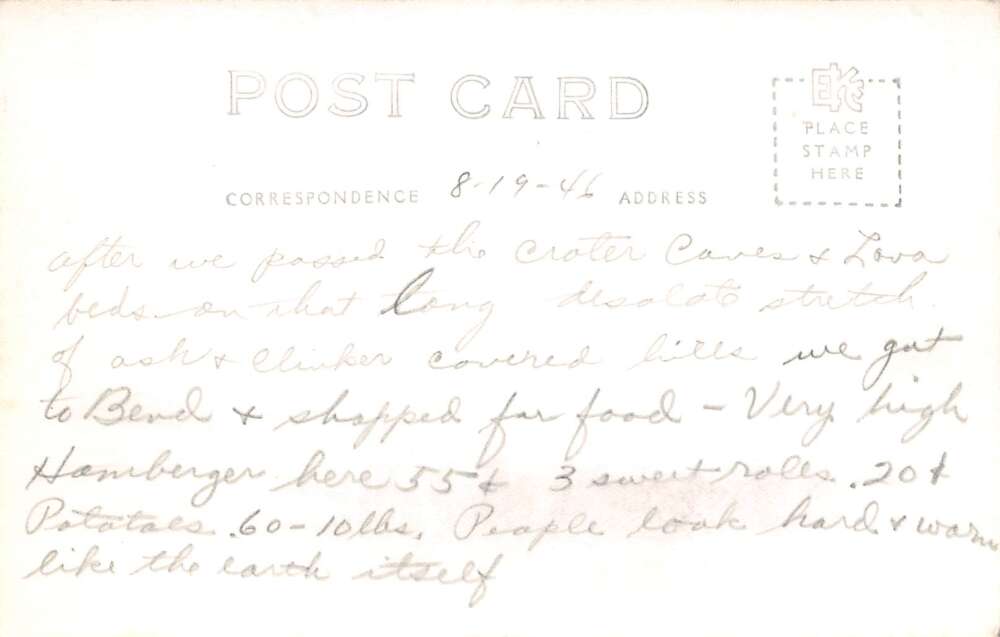 POST CARD
EKC
PLACE
STAMP
HERE
CORRESPONDENCE 8-19-46 ADDRESS
after we passed the Crater Caves & Lava
beds on that long desolate stretch
of ash & Clinker covered hills we got
to Bend & shopped for food - Very high
Hamberger here 55¢ 3 sweet rolls .20¢
Potatoes .60-10lbs. People look hard & worn
like the earth itself